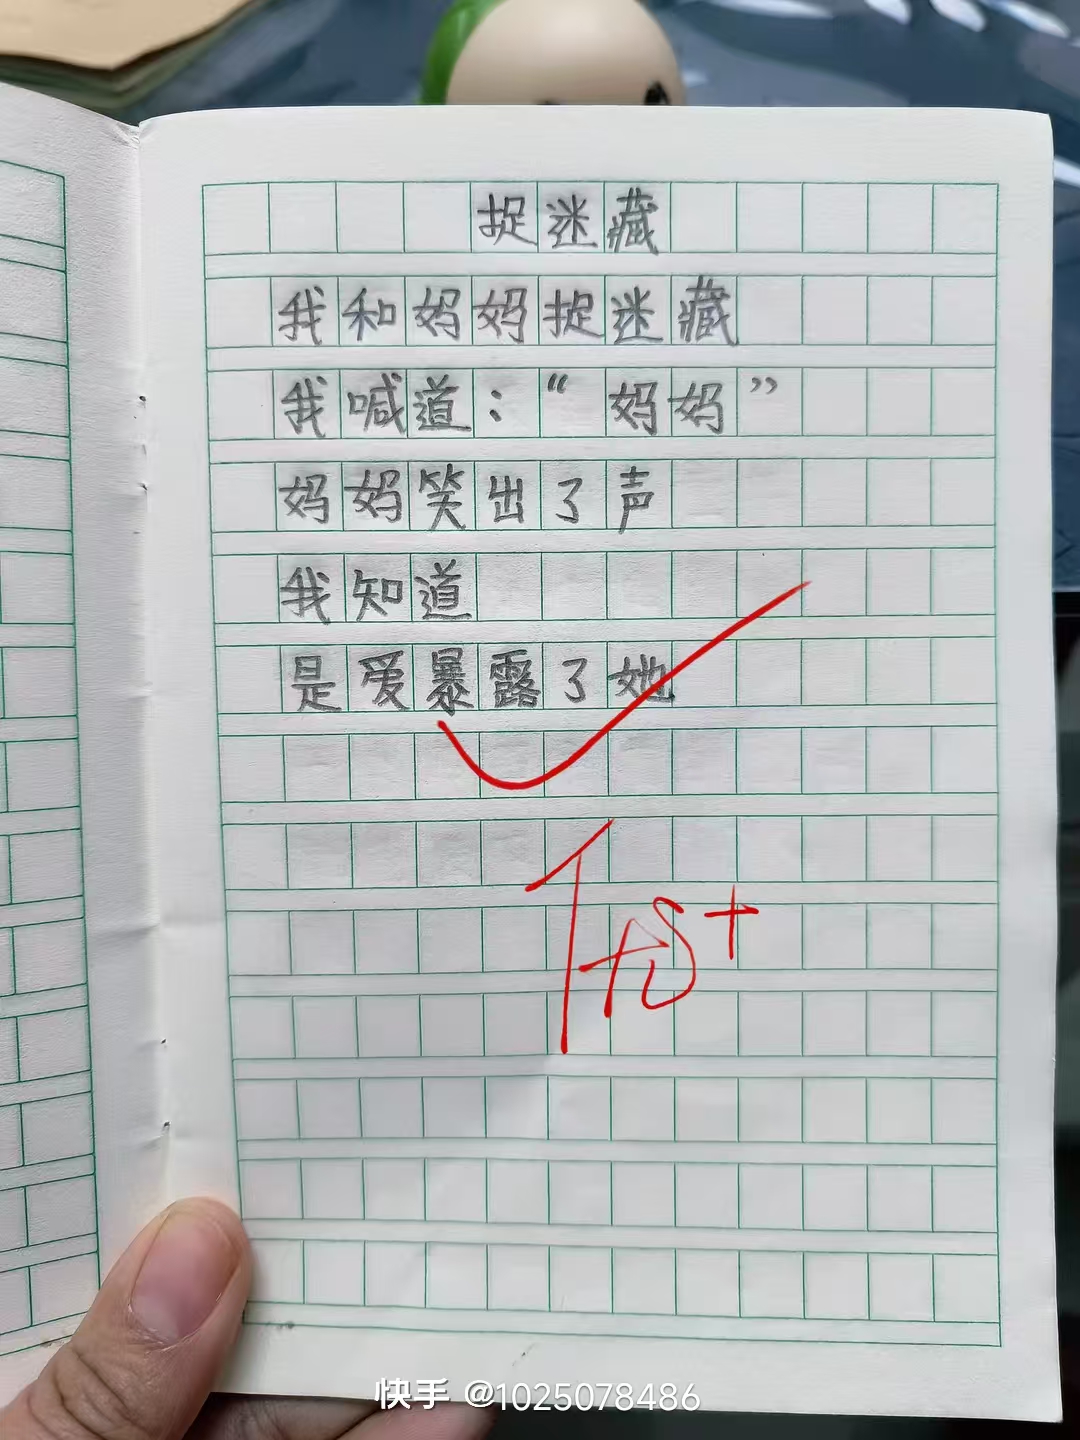 捉迷藏
我和妈妈捉迷藏
我喊道：“妈妈”
妈妈笑出了声
我知道
是爱暴露了她
快手 @1025078486